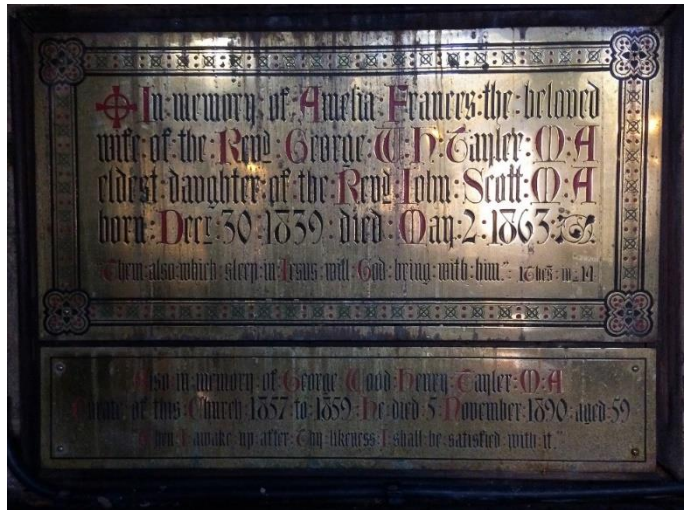 In·memory·of·Amelia·Frances·the·beloved
wife·of·the·Revd·George·W·H·Tayler·M·A
eldest·daughter·of·the·Revd·John·Scott·M·A
born·Decr·30·1839·died·May·2·1863·
"Them·also·which·sleep·in·Jesus·will·God·bring·with·him." 1 Thess·iv·14
Also·in·memory·of·George·Wood·Henry·Tayler·M·A
Curate·of·this·Church·1857·to·1859·He·died·5·November·1890·aged·59
When·I·awake·up·after·Thy·likeness·I·shall·be·satisfied·with·it."